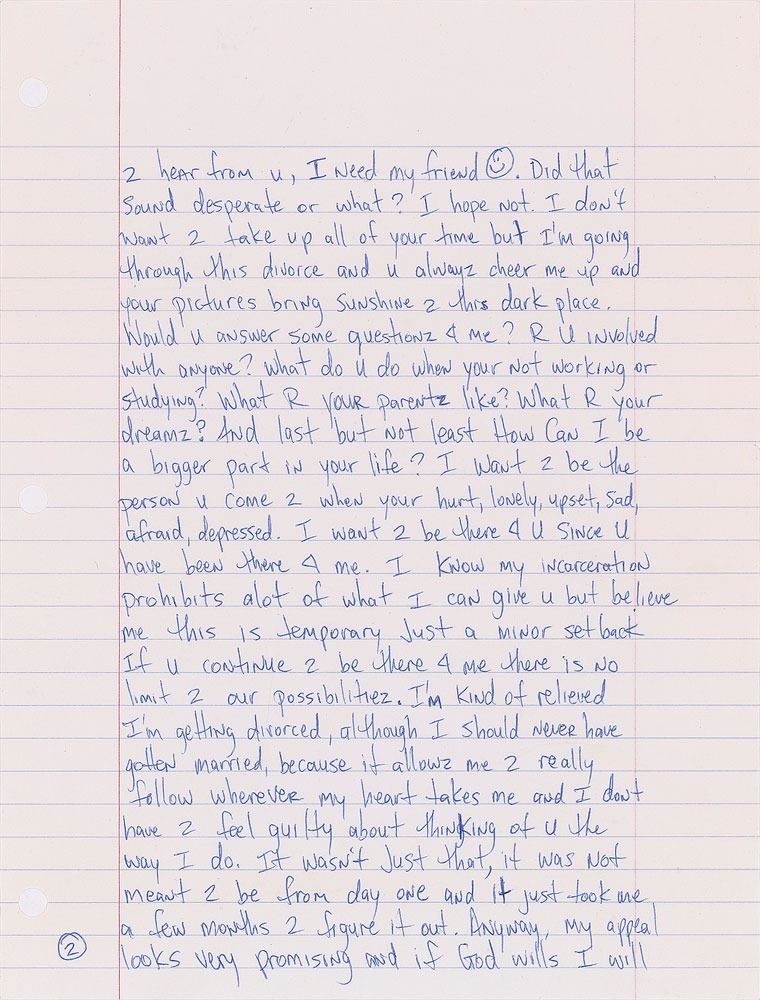 2 hear from u, I need my friend ☺. Did that
sound desperate or what? I hope not. I don't
want 2 take up all of your time but I'm going
through this divorce and u alwayz cheer me up and
your pictures bring sunshine 2 this dark place.
Would u answer some questionz 4 me? R U involved
with anyone? what do u do when your not working or
studying? What R your parentz like? What R your
dreamz? And last but not least How Can I be
a bigger part in your life? I want 2 be the
person u come 2 when your hurt, lonely, upset, sad,
afraid, depressed. I want 2 be there 4 U since U
have been there 4 me. I know my incarceration
prohibits alot of what I can give u but believe
me this is temporary just a minor setback
If u continue 2 be there 4 me there is no
limit 2 our possibilitiez. I'm kind of relieved
I'm getting divorced, although I should never have
gotten married, because it allowz me 2 really
follow wherever my heart takes me and I dont
have 2 feel guilty about thinking of u the
way I do. It wasn't just that, it was not
meant 2 be from day one and it just took me
a few months 2 figure it out. Anyway, my appeal
2 looks very promising and if God wills I will